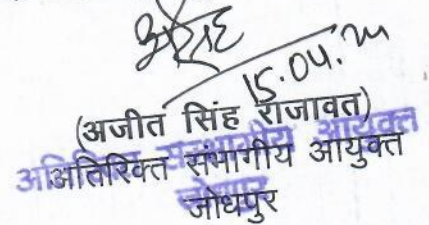 15.04.
(अजीत सिंह राजावत)
अतिरिक्त संभागीय आयुक्त
जोधपुर
अतिरिक्त संभागीय आयुक्त
जोधपुर